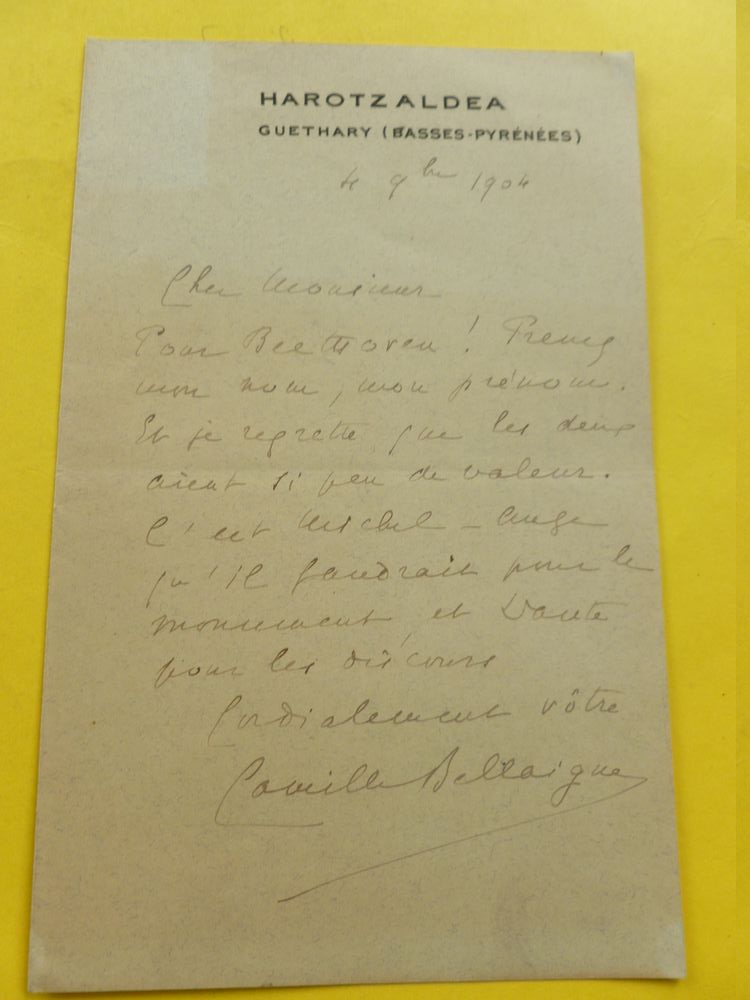 HAROTZALDEA
GUETHARY (BASSES-PYRÉNÉES)
4 9bre 1904
Cher Monsieur
Pour Beethoven ! Prenez
mon nom, mon prénom.
Et je regrette que les deux
aient si peu de valeur.
C'est Michel-Ange
qu'il faudrait pour le
monument et Dante
pour les discours
Cordialement vôtre
Camille Bellaigue